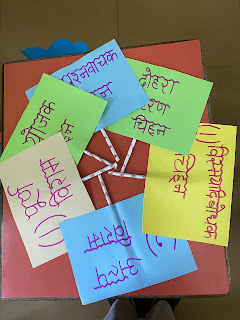 प्रश्नवाचक
दोहरा
चिहन
योजक
पूर्ण
विराम
(।)
(!) विस्मयादिबोधक
चिहन
अल्प
विराम